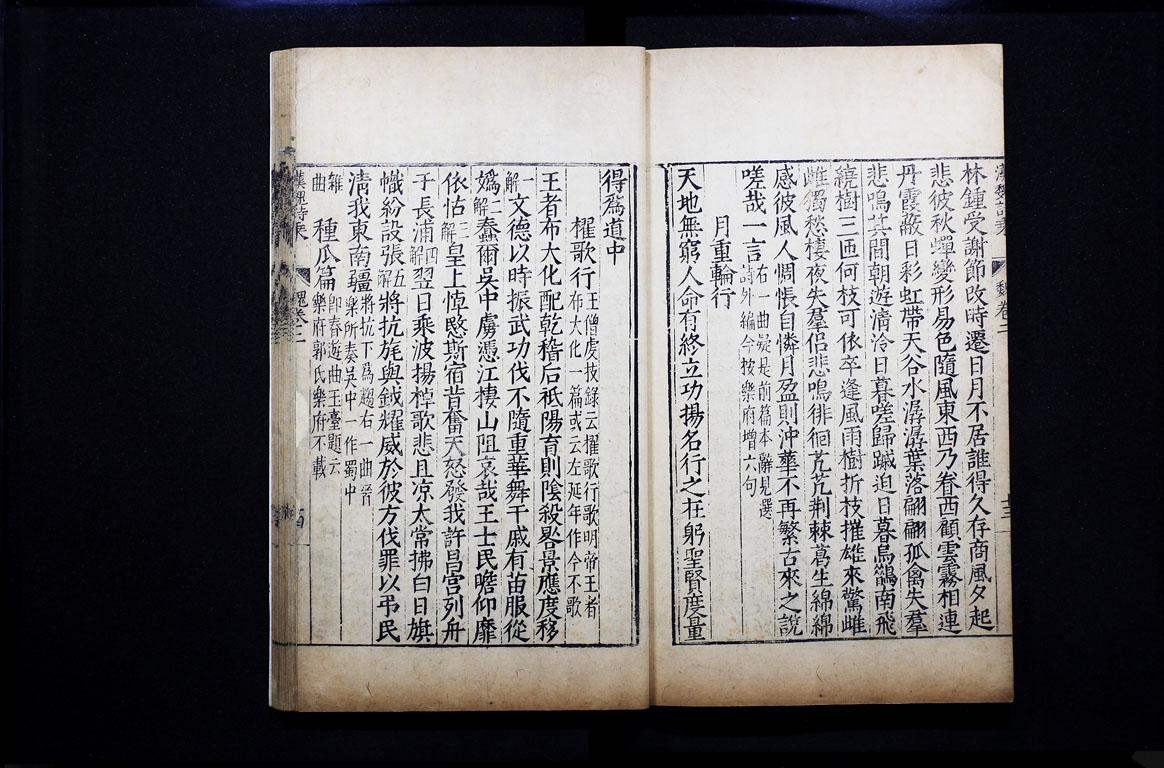 魏卷二
林鍾受謝節改時遷日月不居誰得久存商風夕起
悲彼秋蟬變形易色隨風東西乃眷西顧雲霧相連
丹霞蔽日彩虹帶天谷水潺潺葉落翩翩孤禽失羣
悲鳴其間朝遊清泠日暮嗟歸蹴迫日暮烏鵲南飛
繞樹三匝何枝可依卒逢風雨樹折枝摧雄來驚雌
雌獨愁棲夜失羣侶悲鳴徘徊芃芃荆棘葛生綿綿
感彼風人惆悵自憐月盈則沖華不再繁古來之說
嗟哉一言右一曲疑是前篇本辭見選
詩外編今按樂府增六句
月重輪行
天地無窮人命有終立功揚名行之在躬聖賢度量
得爲道中
櫂歌行王僧虔技錄云櫂歌行歌明帝王者
布大化一篇或云左延年作今不歌
王者布大化配乾稽后祗陽育則陰殺晷景應度移
一解文德以時振武功伐不隨重華舞干戚有苗服從
嬀二解蠢爾吳中虜憑江棲山阻哀哉王士民瞻仰靡
依怙三解皇上悼愍斯宿昔奮天怒發我許昌宮列舟
于長浦四解翌日乘波揚棹歌悲且凉太常拂白日旗
幟紛設張五解將抗旄與鉞耀威於彼方伐罪以弔民
清我東南疆將抗下爲趨右一曲晉
樂所奏吳中一作蜀中
種瓜篇即春遊曲玉臺題云
雜曲樂府郭氏樂府不載
漢魏詩乘
魏卷二